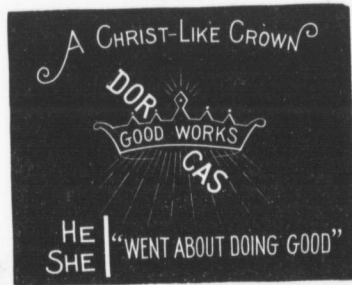 A CHRIST-LIKE CROWN
DOR
GOOD WORKS
CAS
HE
SHE
"WENT ABOUT DOING GOOD"